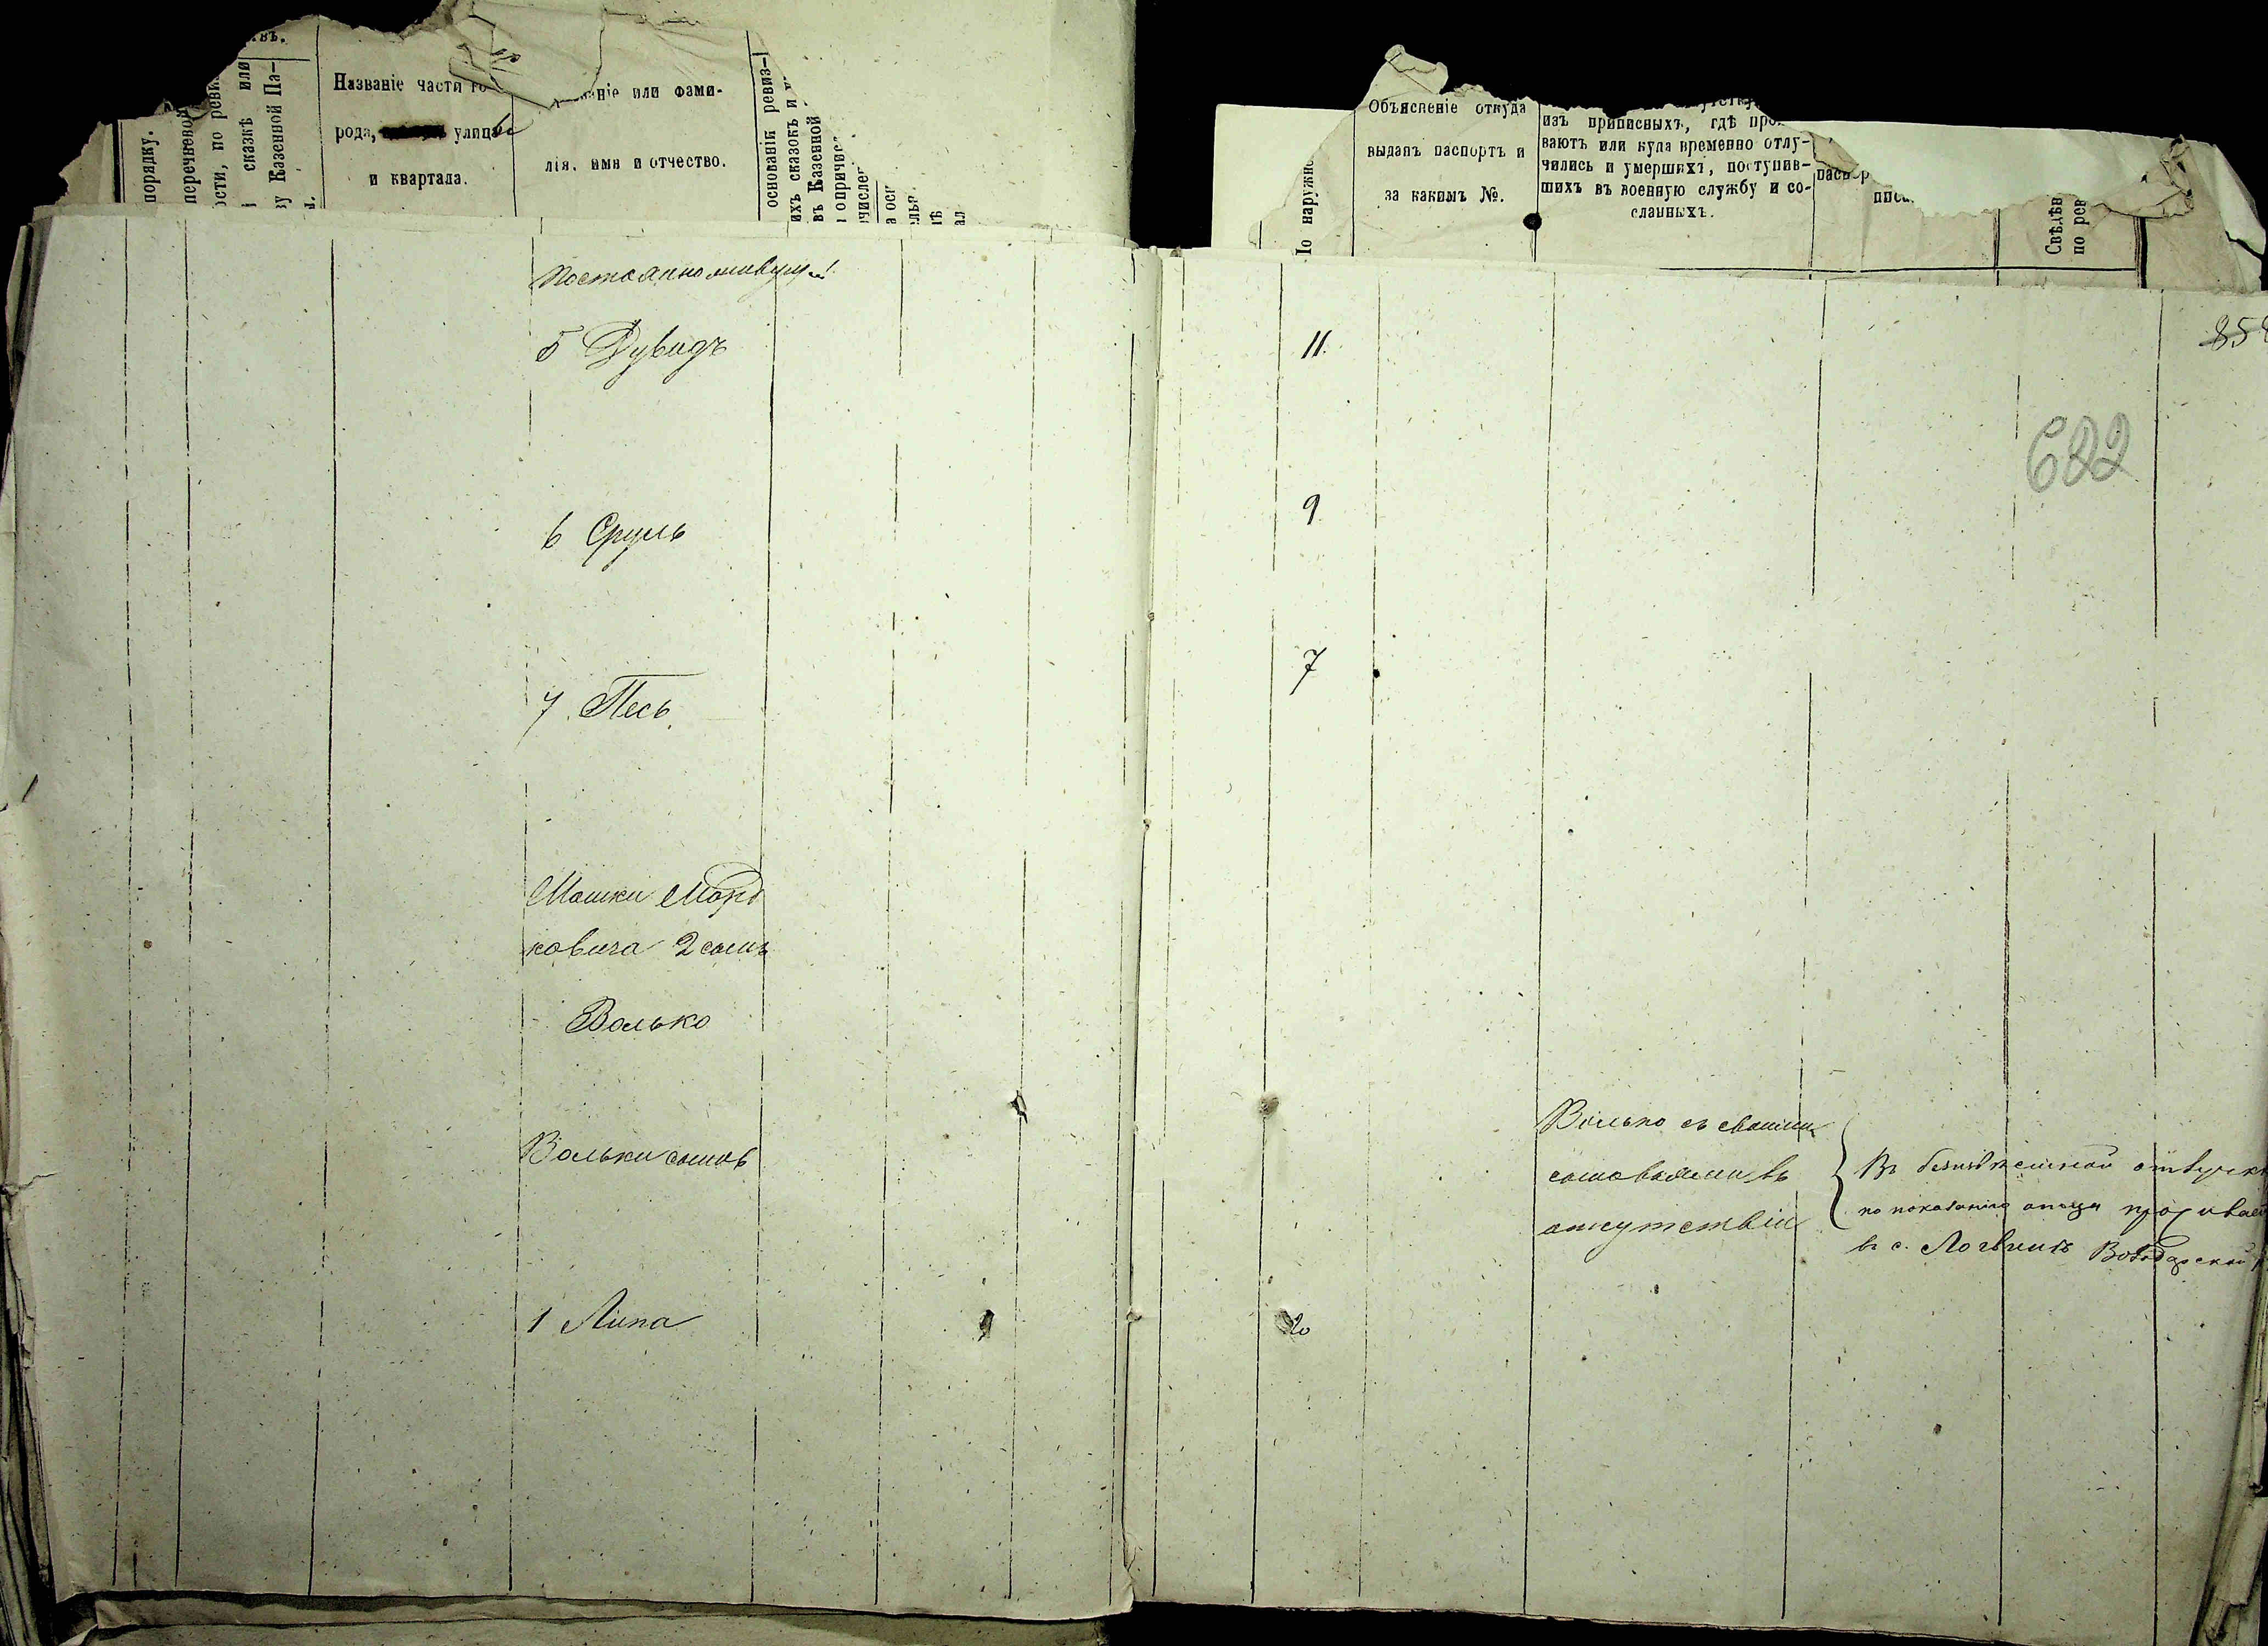 порядку.
перечневой
ости, по ревиз
сказкѣ или
ву Казенной Па-
Названіе части го
рода, улицы
и квартала.
аніе или фами-
лія, имя и отчество.
основаніи ревиз-
ихъ сказокъ и
въ Казенной
о причис
Постоянно живущ.
5 Дувидъ
6 Сруль
7 Песь
Мошки Морд
ковича 2 сынъ
Волько
Вольки сынов
1 Липа
По наружно
Объясненіе откуда
выданъ паспортъ и
за какимъ №.
изъ приписныхъ, гдѣ про
ваютъ или куда временно отлу-
чились и умершихъ, поступив-
шихъ въ военную службу и со-
сланныхъ.
паспор
Свѣдѣн
по рев
11.
9
7
20
682
Волько съ своими
сыновьями въ
отсутствіи
Въ безизвѣстной отлучкѣ
по показанію отца прожива
въ с. Логвинѣ Володарской